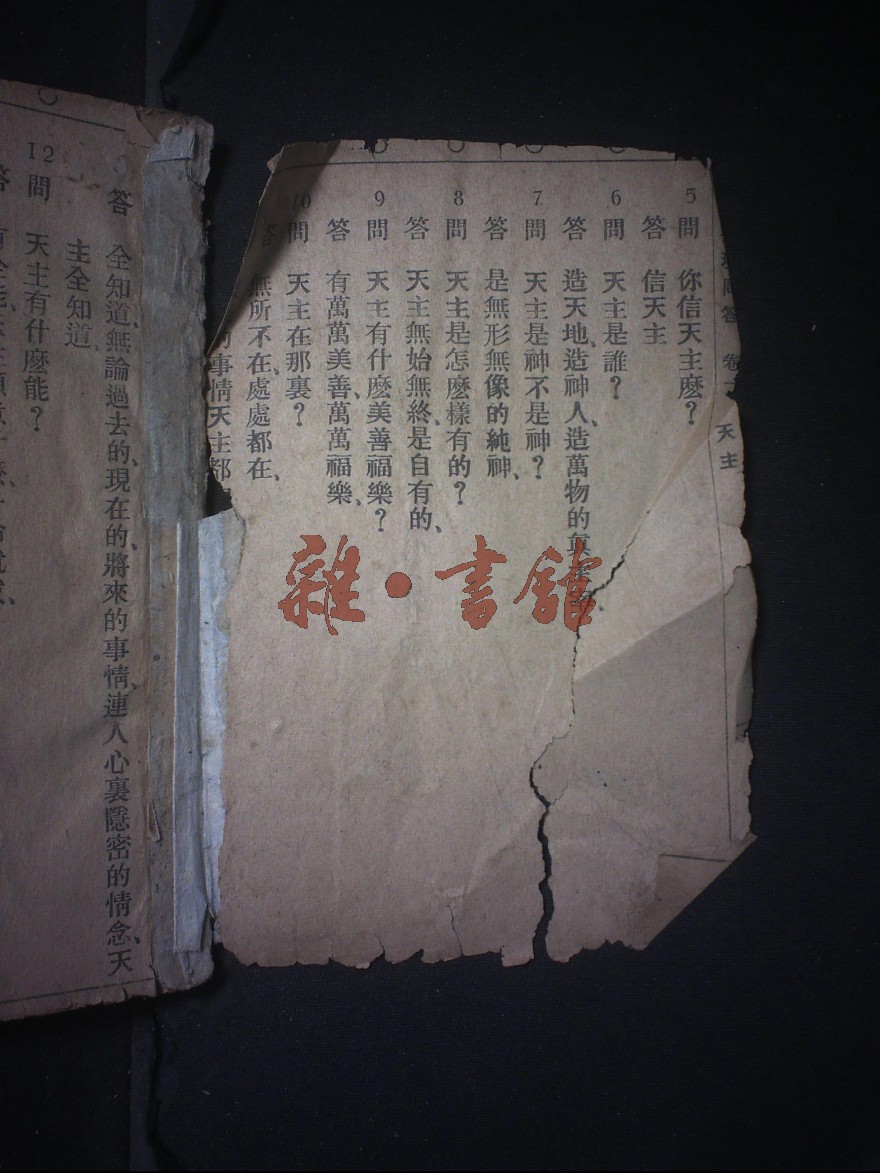 問答 卷 天主
5 問 你信天主麽？
答 信天主
6 問 天主是誰？
答 造天地、造神人、造萬物的真
7 問 天主是神不是神？
答 是無形無像的純神、
8 問 天主是怎麽樣有的？
答 天主無始無終、是自有的、
9 問 天主有什麽美善福樂？
答 有萬萬美善、萬萬福樂、
10 問 天主在那裏？
答 無所不在、處處都在、
事情天主都
答 全知道、無論過去的、現在的、將來的事情、連人心裏隱密的情念、天
主全知道、
12 問 天主有什麽能？
答
雜·書館